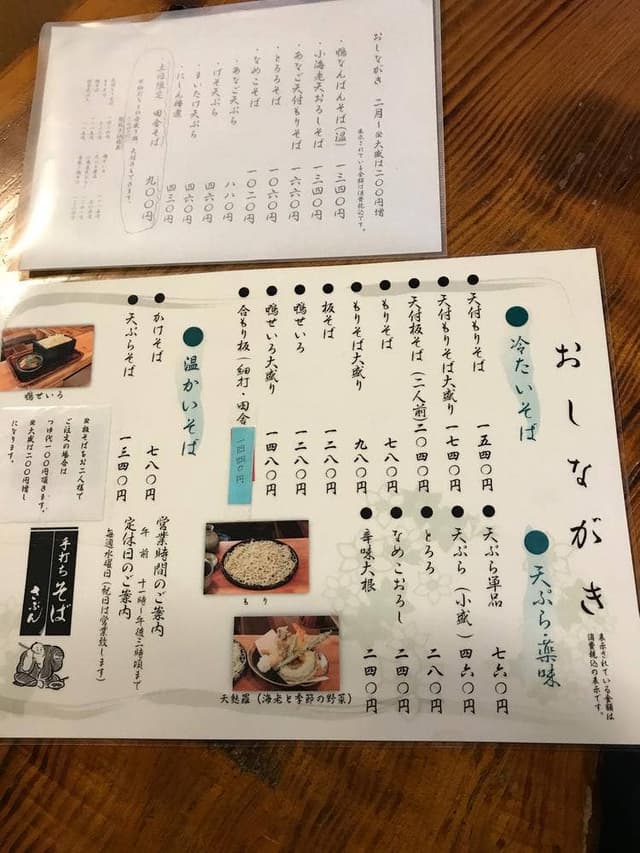 おしながき 二月〜 ※大盛は二〇〇円増
表示されている金額は消費税込です。
・鴨なんばんそば(温) 一三四〇円
・小海老天おろしそば 一三四〇円
・あなご天付もりそば 一六六〇円
・とろろそば 一〇六〇円
・なめこそば 一〇二〇円
・あなご天ぷら 八八〇円
・げそ天ぷら 四六〇円
・まいたけ天ぷら 四六〇円
・にしん棒煮 四三〇円
土日限定 田舎そば 九〇〇円
おしながき
表示されている金額は
消費税込の表示です。
●冷たいそば
●天付もりそば 一五四〇円
●天付もりそば大盛り 一七四〇円
●天付板そば(二人前) 二〇四〇円
●もりそば 七八〇円
●もりそば大盛り 九八〇円
●板そば 一二八〇円
●鴨せいろ 一二八〇円
●鴨せいろ大盛り 一四八〇円
●合もり板(細打・田舎) 一四四〇円
●天ぷら・薬味
●天ぷら単品 七六〇円
●天ぷら(小盛) 四六〇円
●とろろ 二八〇円
●なめこおろし 二四〇円
●辛味大根 二四〇円
もり
天麩羅(海老と季節の野菜)
●温かいそば
●かけそば 七八〇円
●天ぷらそば 一三四〇円
営業時間のご案内
午前 十一時〜午後三時頃まで
定休日のご案内
毎週水曜日(祝日は営業致します)
鴨せいろ
※板そばをお二人様で
ご注文の場合は
つゆ代一〇〇円頂きます。
※大盛は二〇〇円増し
になります。
手打ちそば
さぶん